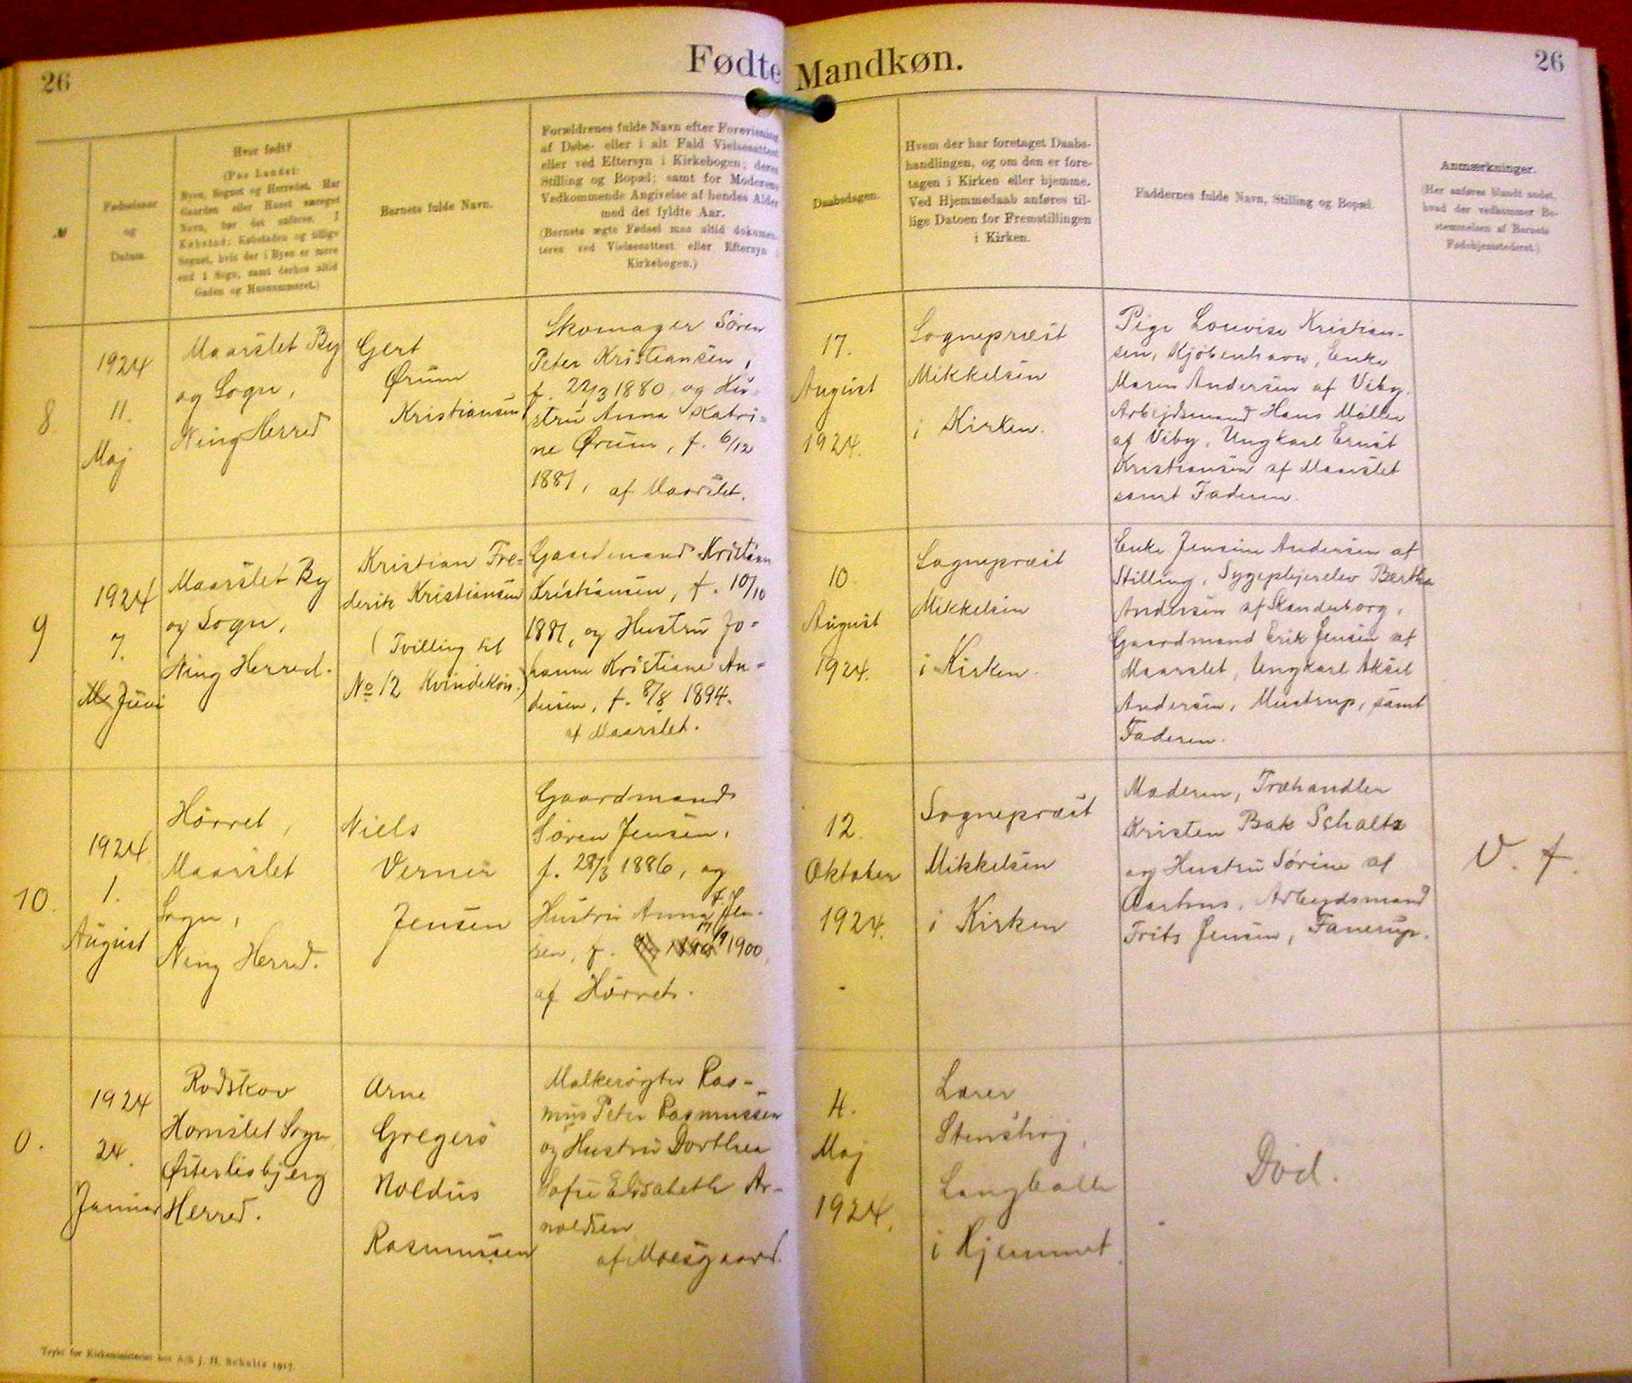 26
Fødte
Mandkøn.
26
№
Fødselsaar
og
Datum.
Hvor født?
(Paa Landet:
Byen, Sognet og Herredet. Har
Gaarden eller Huset særeget
Navn, bør det anføres. I
Købstad: Købstaden og tillige
Sognet, hvis der i Byen er mere
end 1 Sogn, samt derhos altid
Gaden og Husnummeret.)
Barnets fulde Navn.
Forældrenes fulde Navn efter Forevisning
af Døbe- eller i alt Fald Vielsesattest
eller ved Eftersyn i Kirkebogen; deres
Stilling og Bopæl; samt for Moderens
Vedkommende Angivelse af hendes Alder
med det fyldte Aar.
(Barnets ægte Fødsel maa altid dokumen-
teres ved Vielsesattest eller Eftersyn i
Kirkebogen.)
Daabsdagen.
Hvem der har foretaget Daabs-
handlingen, og om den er fore-
tagen i Kirken eller hjemme.
Ved Hjemmedaab anføres til-
lige Datoen for Fremstillingen
i Kirken.
Faddernes fulde Navn, Stilling og Bopæl.
Anmærkninger.
(Her anføres blandt andet,
hvad der vedkommer Be-
stemmelsen af Barnets
Fødehjemstedsret.)
8
1924
11.
Maj
Maarslet By
og Sogn,
Ning Herred
Gert
Ørum
Kristiansen
Skomager Søren
Peter Kristiansen,
f. 22/3 1880, og Hu-
stru Anna Katri-
ne Ørum, f. 6/12
1881, af Maarslet.
17.
August
1924.
Sognepræst
Mikkelsen
i Kirken.
Pige Louvise Kristian-
sen, Kjøbenhavn, Enke
Maren Andersen af Viby.
Arbejdsmand Hans Møller
af Viby, Ungkarl Ernst
Kristiansen af Maarslet
samt Faderen.
9
1924
7.
Juni
Maarslet By
og Sogn,
Ning Herred.
Kristian Fre-
derik Kristiansen
(Tvilling til
No 12 Kvindekøn.)
Gaardmand Kristian
Kristiansen, f. 10/10
1881, og Hustru Jo-
hanne Kristiane An-
dersen, f. 8/8 1894.
af Maarslet.
10.
August
1924.
Sognepræst
Mikkelsen
i Kirken.
Enke Jensine Andersen af
Stilling, Sygeplejerelev Bertha
Andersen af Skanderborg,
Gaardmand Erik Jensen af
Maarslet, Ungkarl Aksel
Andersen, Mustrup, samt
Faderen.
10.
1924
1.
August
Hørret,
Maarslet
Sogn,
Ning Herred.
Niels
Verner
Jensen
Gaardmand
Søren Jensen,
f. 28/3 1886, og
Hustru Anna f. Jen-
sen, f. 17/9 1900,
af Hørret.
12.
Oktober
1924.
Sognepræst
Mikkelsen
i Kirken
Moderen, Træhandler
Kristen Bak Schaltz
og Hustru Sørine af
Aarhus, Arbejdsmand
Frits Jensen, Fanerup.
V. f.
0.
1924
24.
Januar
Rodskov
Hornslet Sogn
Østerlisbjerg
Herred.
Arne
Gregers
Noldus
Rasmussen
Malkerøgter Ras-
mus Peter Rasmussen
og Hustru Dorthea
Sofie Elisabeth Ar-
noldsen
af Moesgaard.
4.
Maj
1924.
Lærer
Stenshøj,
Langballe
i Hjemmet.
Død.
Trykt for Kirkeministeriet hos A/S J. H. Schultz 1917.